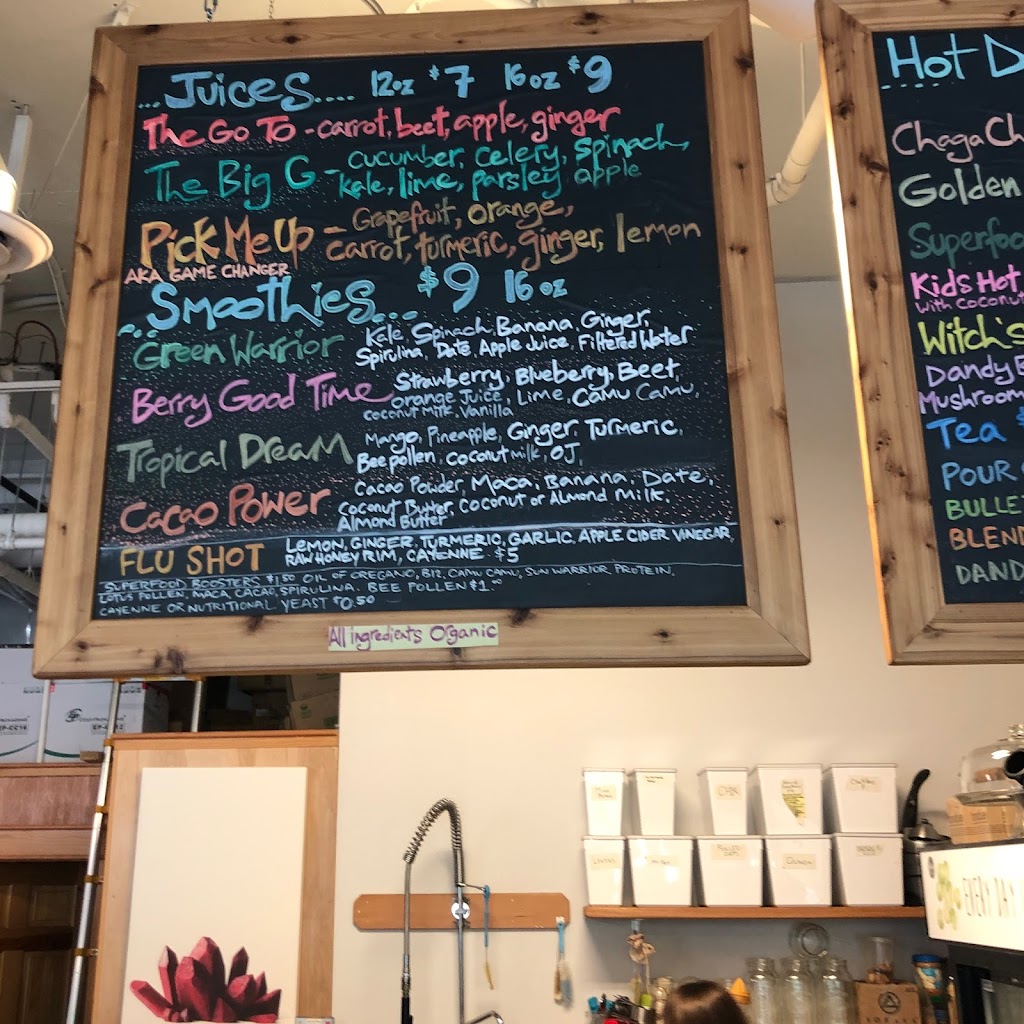 ...Juices.... 12oz $7 16oz $9
The Go To - carrot, beet, apple, ginger
The Big G - cucumber, celery, spinach,
kale, lime, parsley apple
Pick Me Up - Grapefruit, orange,
carrot, turmeric, ginger, lemon
AKA GAME CHANGER
Smoothies... $9 16oz
Green Warrior Kale, Spinach, Banana, Ginger,
Spirulina, Date, Apple Juice, Filtered Water
Berry Good Time Strawberry, Blueberry, Beet
orange Juice, Lime, Camu Camu,
coconut milk, Vanilla
Tropical Dream Mango, Pineapple, Ginger, Turmeric,
Bee pollen, coconut milk, OJ,
Cacao Power Cacao Powder, Maca, Banana, Date,
Coconut Butter, Coconut or Almond Milk,
Almond Butter
FLU SHOT LEMON, GINGER, TURMERIC, GARLIC, APPLE CIDER VINEGAR,
RAW HONEY RIM, CAYENNE $5
SUPERFOOD BOOSTERS $1.50 OIL OF OREGANO, B12, CAMU CAMU, SUN WARRIOR PROTEIN,
LOTUS POLLEN, MACA, CACAO, SPIRULINA. BEE POLLEN $1.00
CAYENNE OR NUTRITIONAL YEAST $0.50
All ingredients Organic
Hot D
Chaga Ch
Golden
Superfoo
Kids Hot
with Coconut
Witch's
Dandy E
Mushroom
Tea $
POUR
BULLE
BLEND
DAND
EVERY DAY